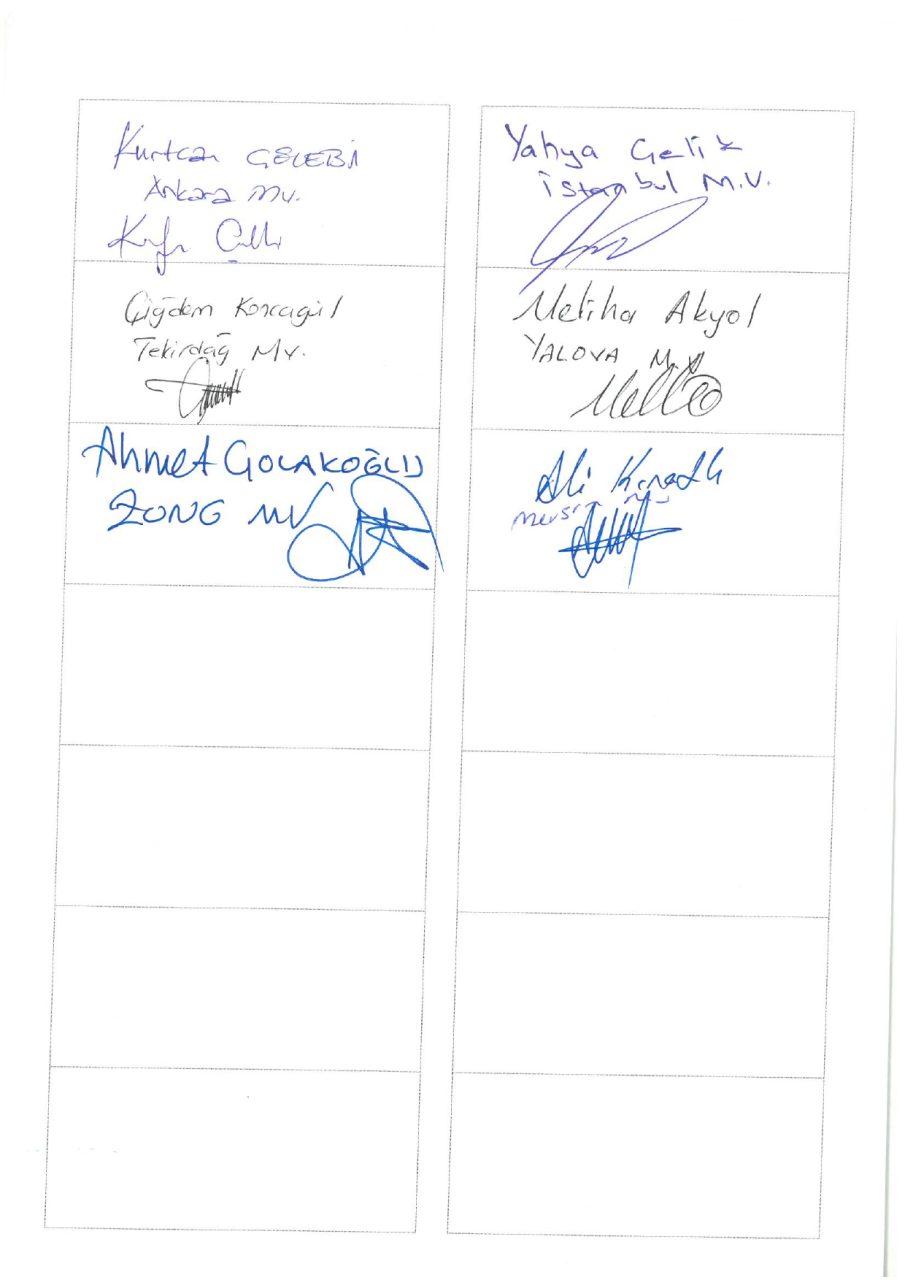 Kurtcan ÇELEBİ
Ankara Mv.
Yahya Çelik
İstanbul M.V.
Çiğdem Koncagül
Tekirdağ Mv.
Meliha Akyol
YALOVA M.V.
Ahmet ÇOLAKOĞLU
ZONG MV
Ali Kıratlı
Mersin Mv